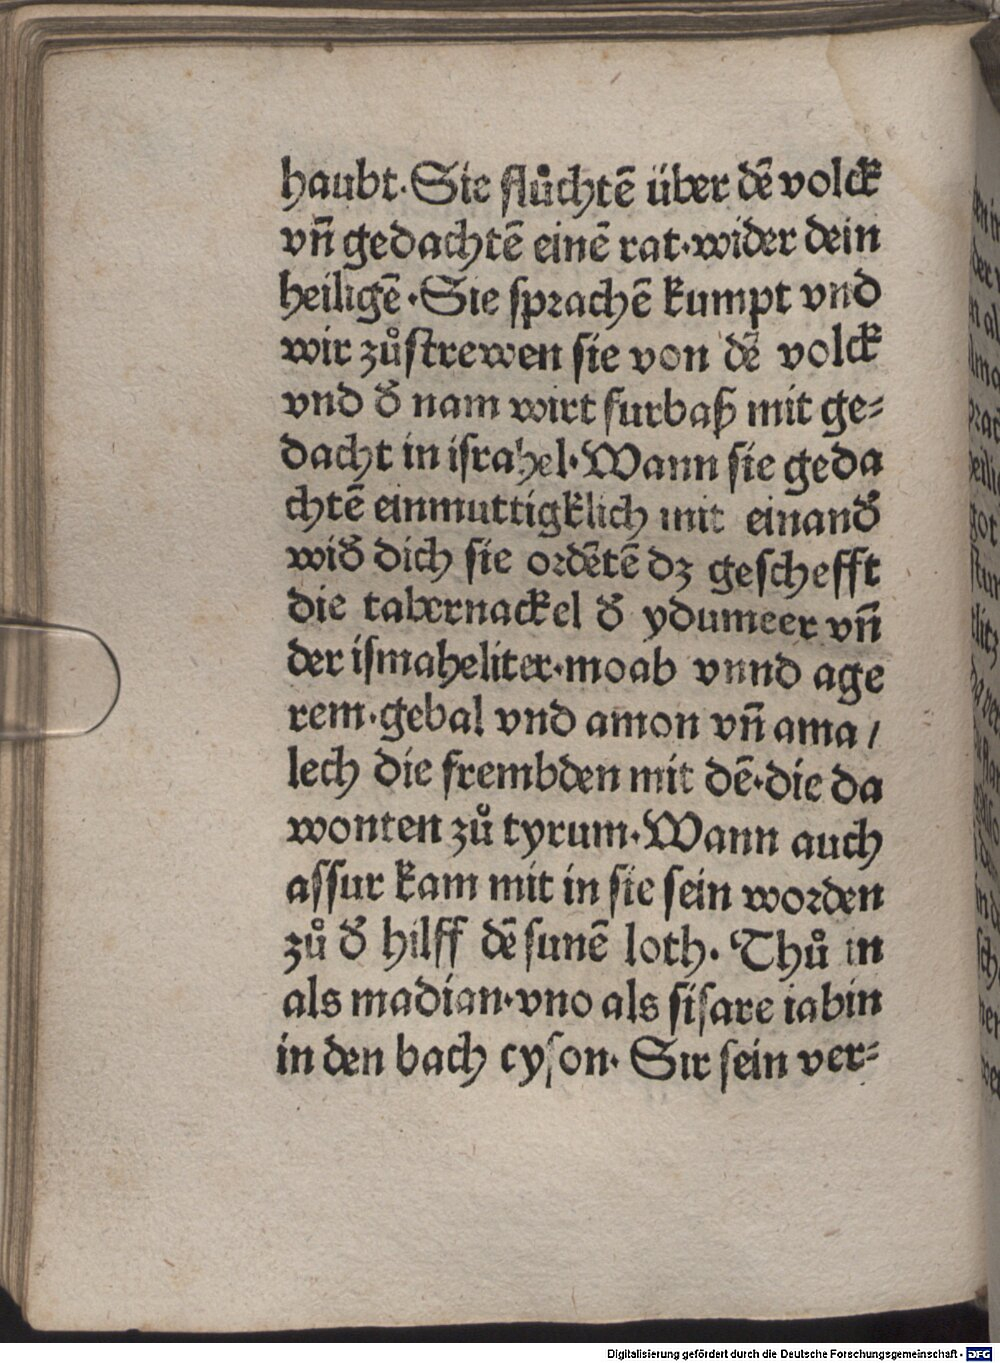 haubt·Sie flůchtē über dē volck
vn̄ gedachtē einē rat·wider dein
heiligē·Sie sprachē kumpt vnd
wir zůstrewen sie von dē volck
vnd d̕ nam wirt furbaß mit ge⸗
dacht in israhel·Wann sie geda
chtē einmuttigklich mit einand̕
wid̕ dich sie ordētē dz geschefft
die tabernackel d̕ ydumeer vn̄
der ismaheliter·moab vnnd age
rem·gebal vnd amon vn̄ ama /
lech die frembden mit dē·die da
wonten zů tyrum·Wann auch
assur kam mit in sie sein worden
zů d̕ hilff dē sunē loth· Thů in
als madian·vno als sisare iabin
in den bach cyson· Sir sein ver⸗
Digitalisierung gefördert durch die Deutsche Forschungsgemeinschaft - DFG